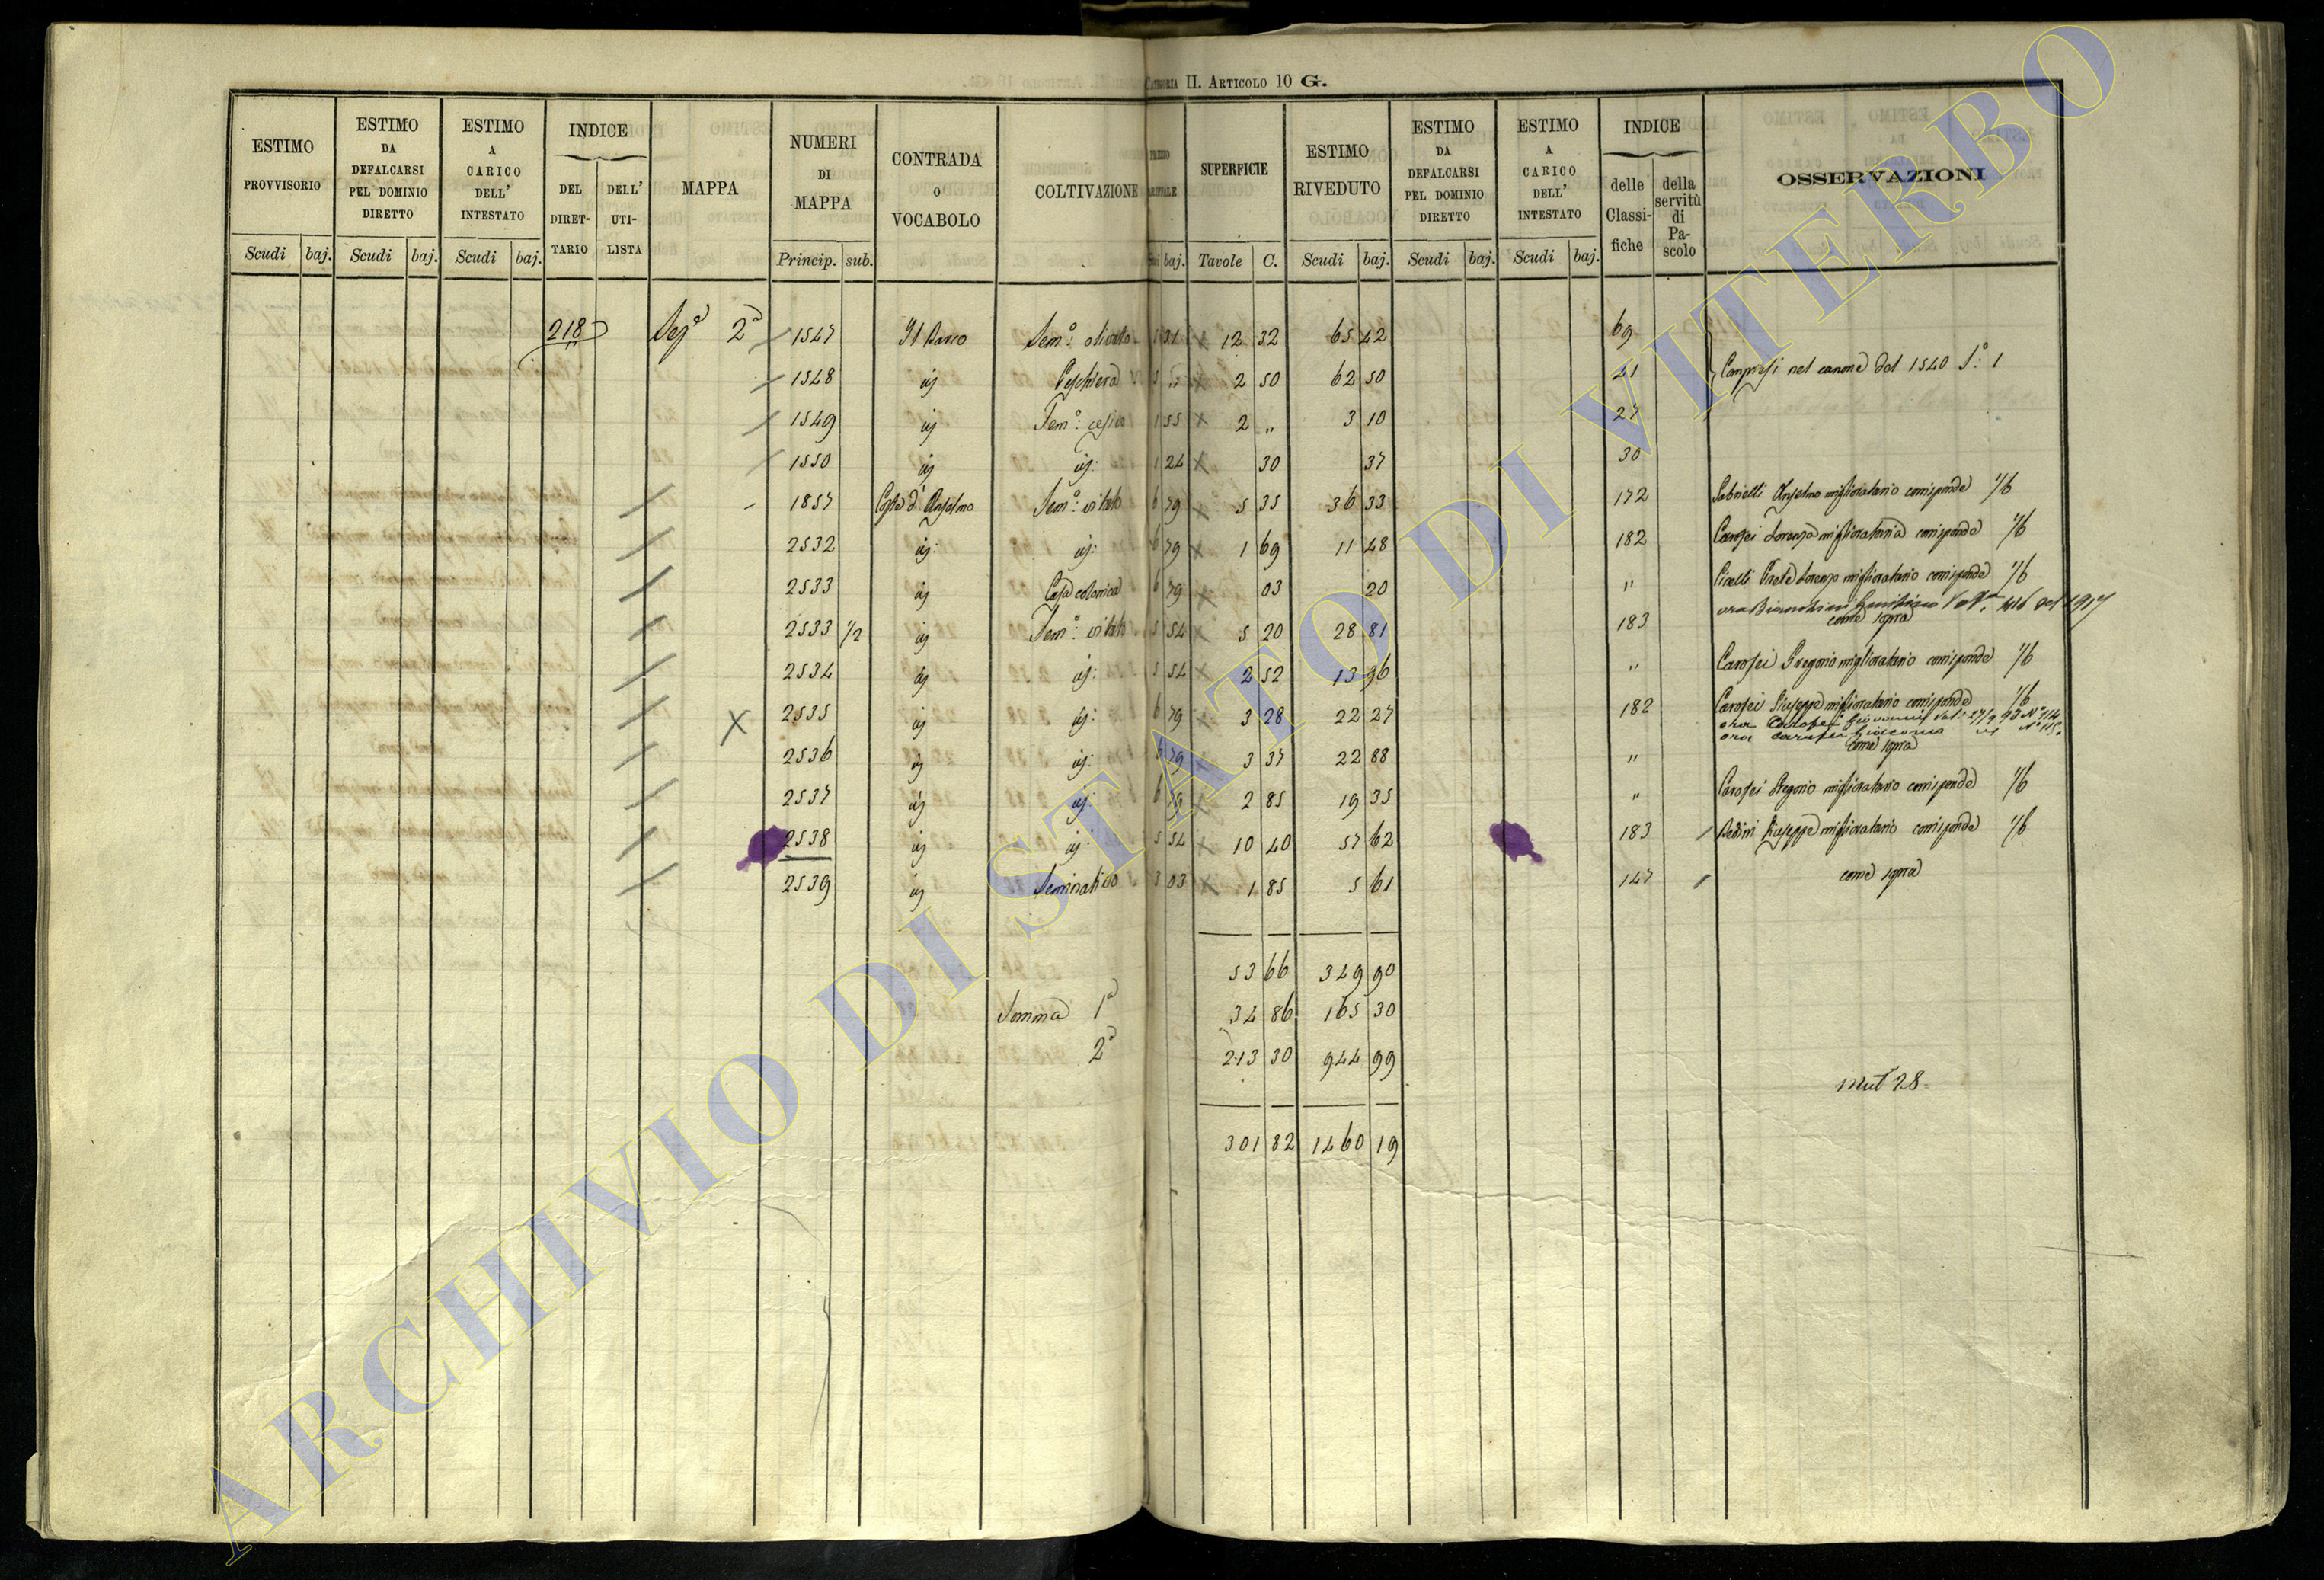 Categoria II. Articolo 10 G.
ESTIMO PROVVISORIO Scudi baj.
ESTIMO DA DEFALCARSI PEL DOMINIO DIRETTO Scudi baj.
ESTIMO A CARICO DELL' INTESTATO Scudi baj.
INDICE DEL DIRETTARIO DELL' UTILISTA
MAPPA
NUMERI DI MAPPA Princip. sub.
CONTRADA O VOCABOLO
COLTIVAZIONE
baj.
SUPERFICIE Tavole C.
ESTIMO RIVEDUTO Scudi baj.
ESTIMO DA DEFALCARSI PEL DOMINIO DIRETTO Scudi baj.
ESTIMO A CARICO DELL' INTESTATO Scudi baj.
INDICE delle Classifiche della servitù di Pascolo
OSSERVAZIONI
218 Segª 2ª 1547 Il Parco Semº: olivato 1 31 12 32 65 42 69
1548 id Peschiera 2 50 62 50 41 Compresi nel canone del 1540 Sº: 1
1549 id Semº: cesivo 1 55 2 „ 3 10 27
1550 id id: 1 24 30 37 30
1857 Costa d'Anselmo Semº: vitato 6 79 5 35 36 33 172 Gabrielli Anselmo miglioratario corrisponde 1/6
2532 id: id: 6 79 1 69 11 48 182 Carosei Lorenzo migliorataria corrisponde 1/6
2533 id Casa colonica 6 79 03 20 " Lorenzo miglioratario corrisponde 1/6
2533 1/2 id Semº: vitato 5 54 5 20 28 81 183 come sopra
2534 id id: 5 54 2 52 13 96 " Carosei Gregorio miglioratario corrisponde 1/6
2535 id id: 6 79 3 28 22 27 182 Carosei Giuseppe miglioratario corrisponde 1/6
ora Carosei Giovanni
ora Carosei Giacomo
2536 id id: 6 79 3 37 22 88 " come sopra
2537 id id: 6 79 2 85 19 35 " Carosei Gregorio miglioratario corrisponde 1/6
2538 id id: 5 54 10 40 57 62 183 Bedini Giuseppe miglioratario corrisponde 1/6
2539 id Seminativo 3 03 1 85 5 61 147 come sopra
53 66 349 90
Somma 1ª 34 86 165 30
2ª 213 30 944 99
mut 28
301 82 1460 19
ARCHIVIO DI STATO DI VITERBO